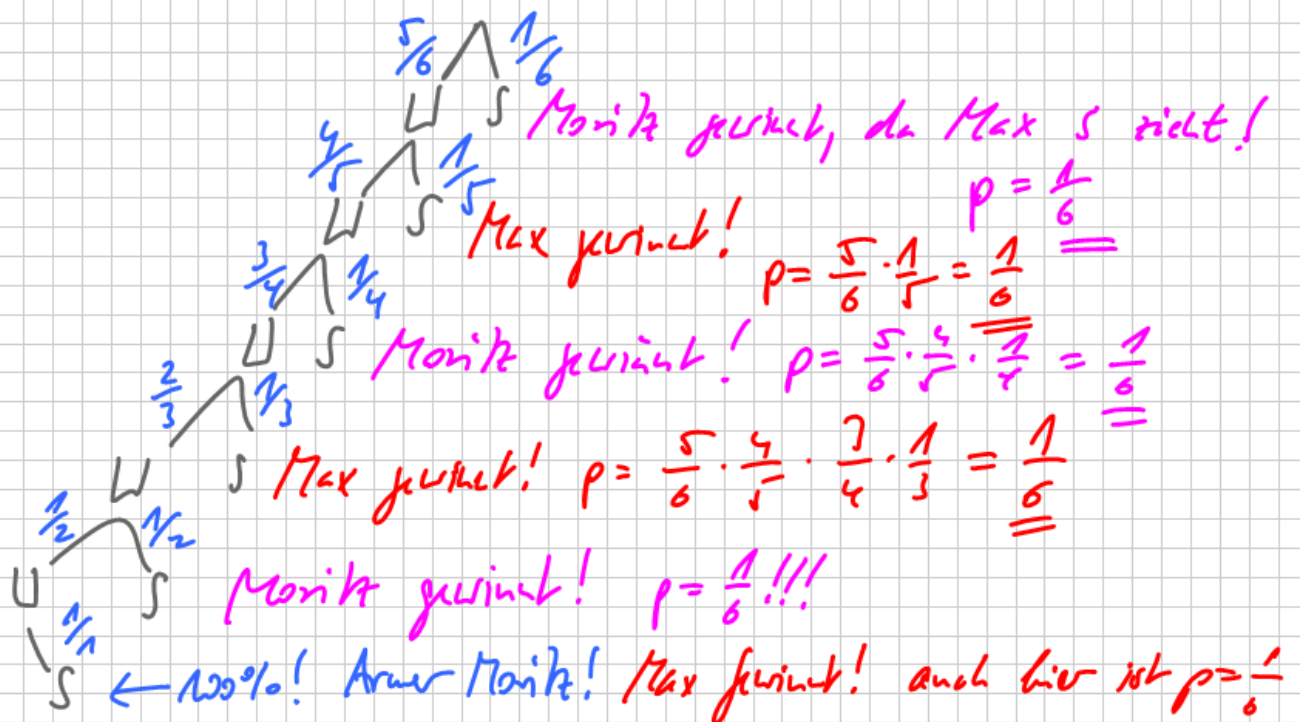 5/6 1/6
W S Moritz gewinnt, da Max S zieht!
4/5 1/5 p = 1/6
W S Max gewinnt!
3/4 1/4 p = 5/6 · 1/5 = 1/6
W S Moritz gewinnt! p = 5/6 · 4/5 · 1/4 = 1/6
2/3 1/3
W S Max gewinnt! p = 5/6 · 4/5 · 3/4 · 1/3 = 1/6
1/2 1/2
W S Moritz gewinnt! p = 1/6!!!
1/1
S ← 100%! Armer Moritz! Max gewinnt! auch hier ist p = 1/6